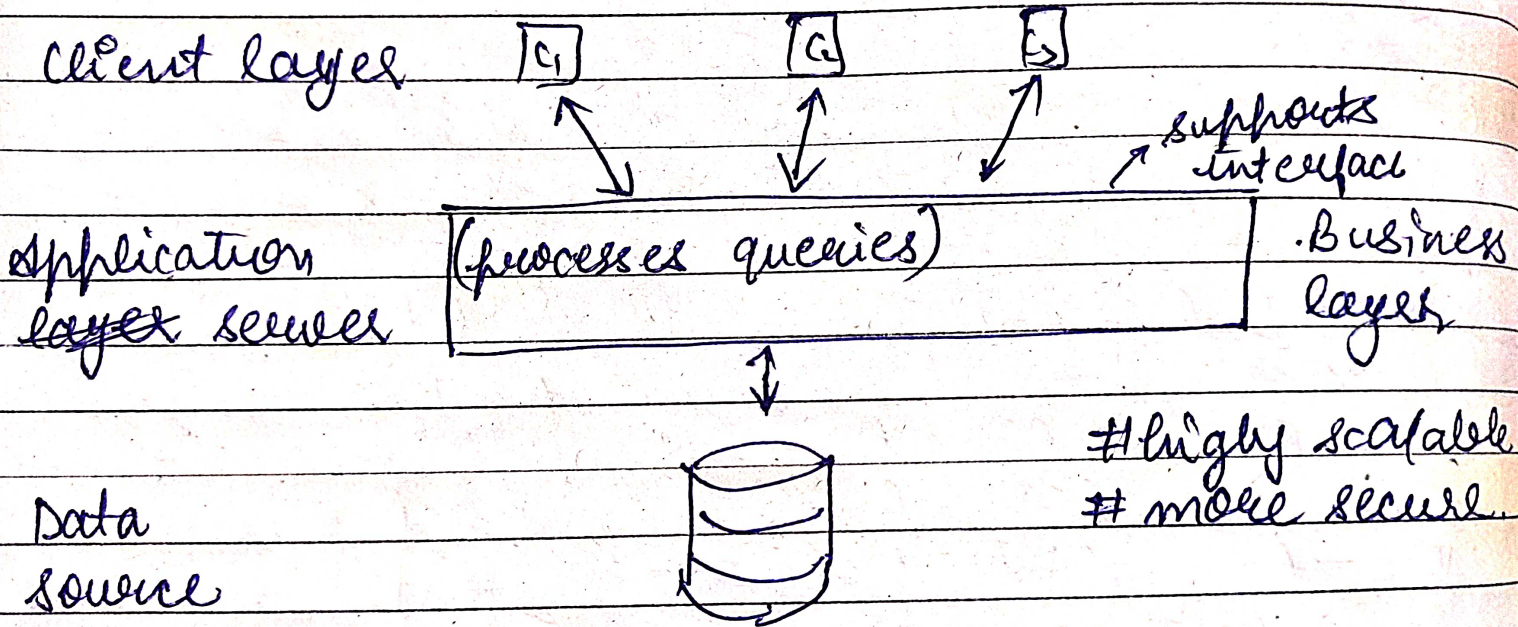 Client layer
C1
C2
C3
supports
interface
Application
layer server
(processes queries)
Business
layer
#higly scalable
# more secure.
Data
source